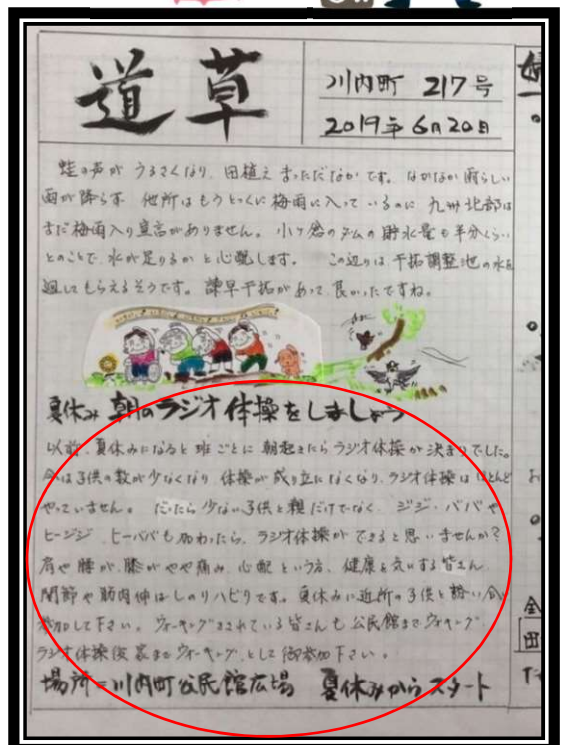 道草
川内町 217号
2019年6月20日
蛙の声が うるさくなり、田植え まっただなか です。なかなか 雨らしい
雨が降らず 他所はもうとっくに梅雨に入って いるのに 九州北部は
まだ梅雨入り宣言がありません。小ヶ倉のダムの貯水量も半分くらい
とのことで、水が足りるか と心配します。 この辺りは 干拓調整池の水を
廻してもらえるそうです。諫早干拓があって、良かったですね。
夏休み 朝のラジオ体操をしましょう
以前、夏休みになると 班ごとに 朝起きたら ラジオ体操が 決まりでした。
今は子供の数が少なくなり、体操が 成り立たなくなり、ラジオ体操は ほとんど
やっていません。 だったら 少ない子供と親だけでなく、ジジ・ババや
ヒージジ、ヒーババも加わったら、ラジオ体操が できると思いませんか?
肩や腰が、膝がやや痛み、心配という方、健康を気にする皆さん、
関節や筋肉伸ばしのリハビリです。夏休みに近所の子供と誘い合
参加して下さい。ウォーキングされている皆さんも 公民館までウォーキング、
ラジオ体操後 家までウォーキング、として御参加下さい。
場所=川内町公民館広場 夏休みからスタート